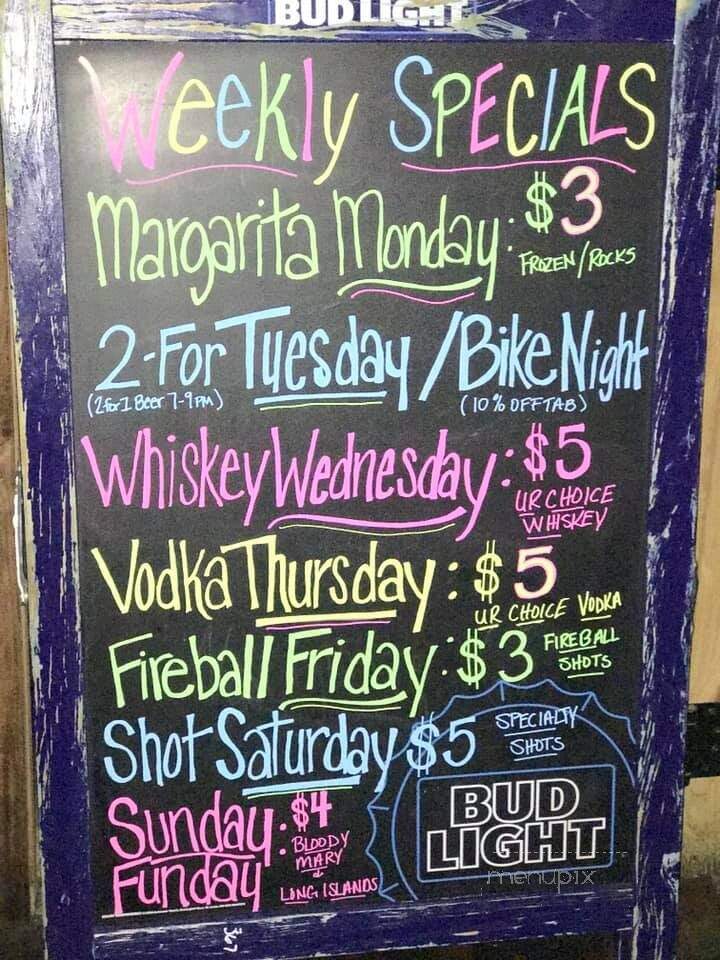 BUD LIGHT
Weekly SPECIALS
Margarita Monday: $3
FROZEN/ROCKS
2-For Tuesday/Bike Night
(2 for 1 Beer 7-9PM) (10% OFF TAB)
Whiskey Wednesday: $5
UR CHOICE
WHISKEY
Vodka Thursday: $5
UR CHOICE VODKA
Fireball Friday: $3 FIREBALL
SHOTS
Shot Saturday $5 SPECIALTY
SHOTS
Sunday: $4
Funday BLOODY
MARY
&
LONG ISLANDS
BUD
LIGHT
menupix
367